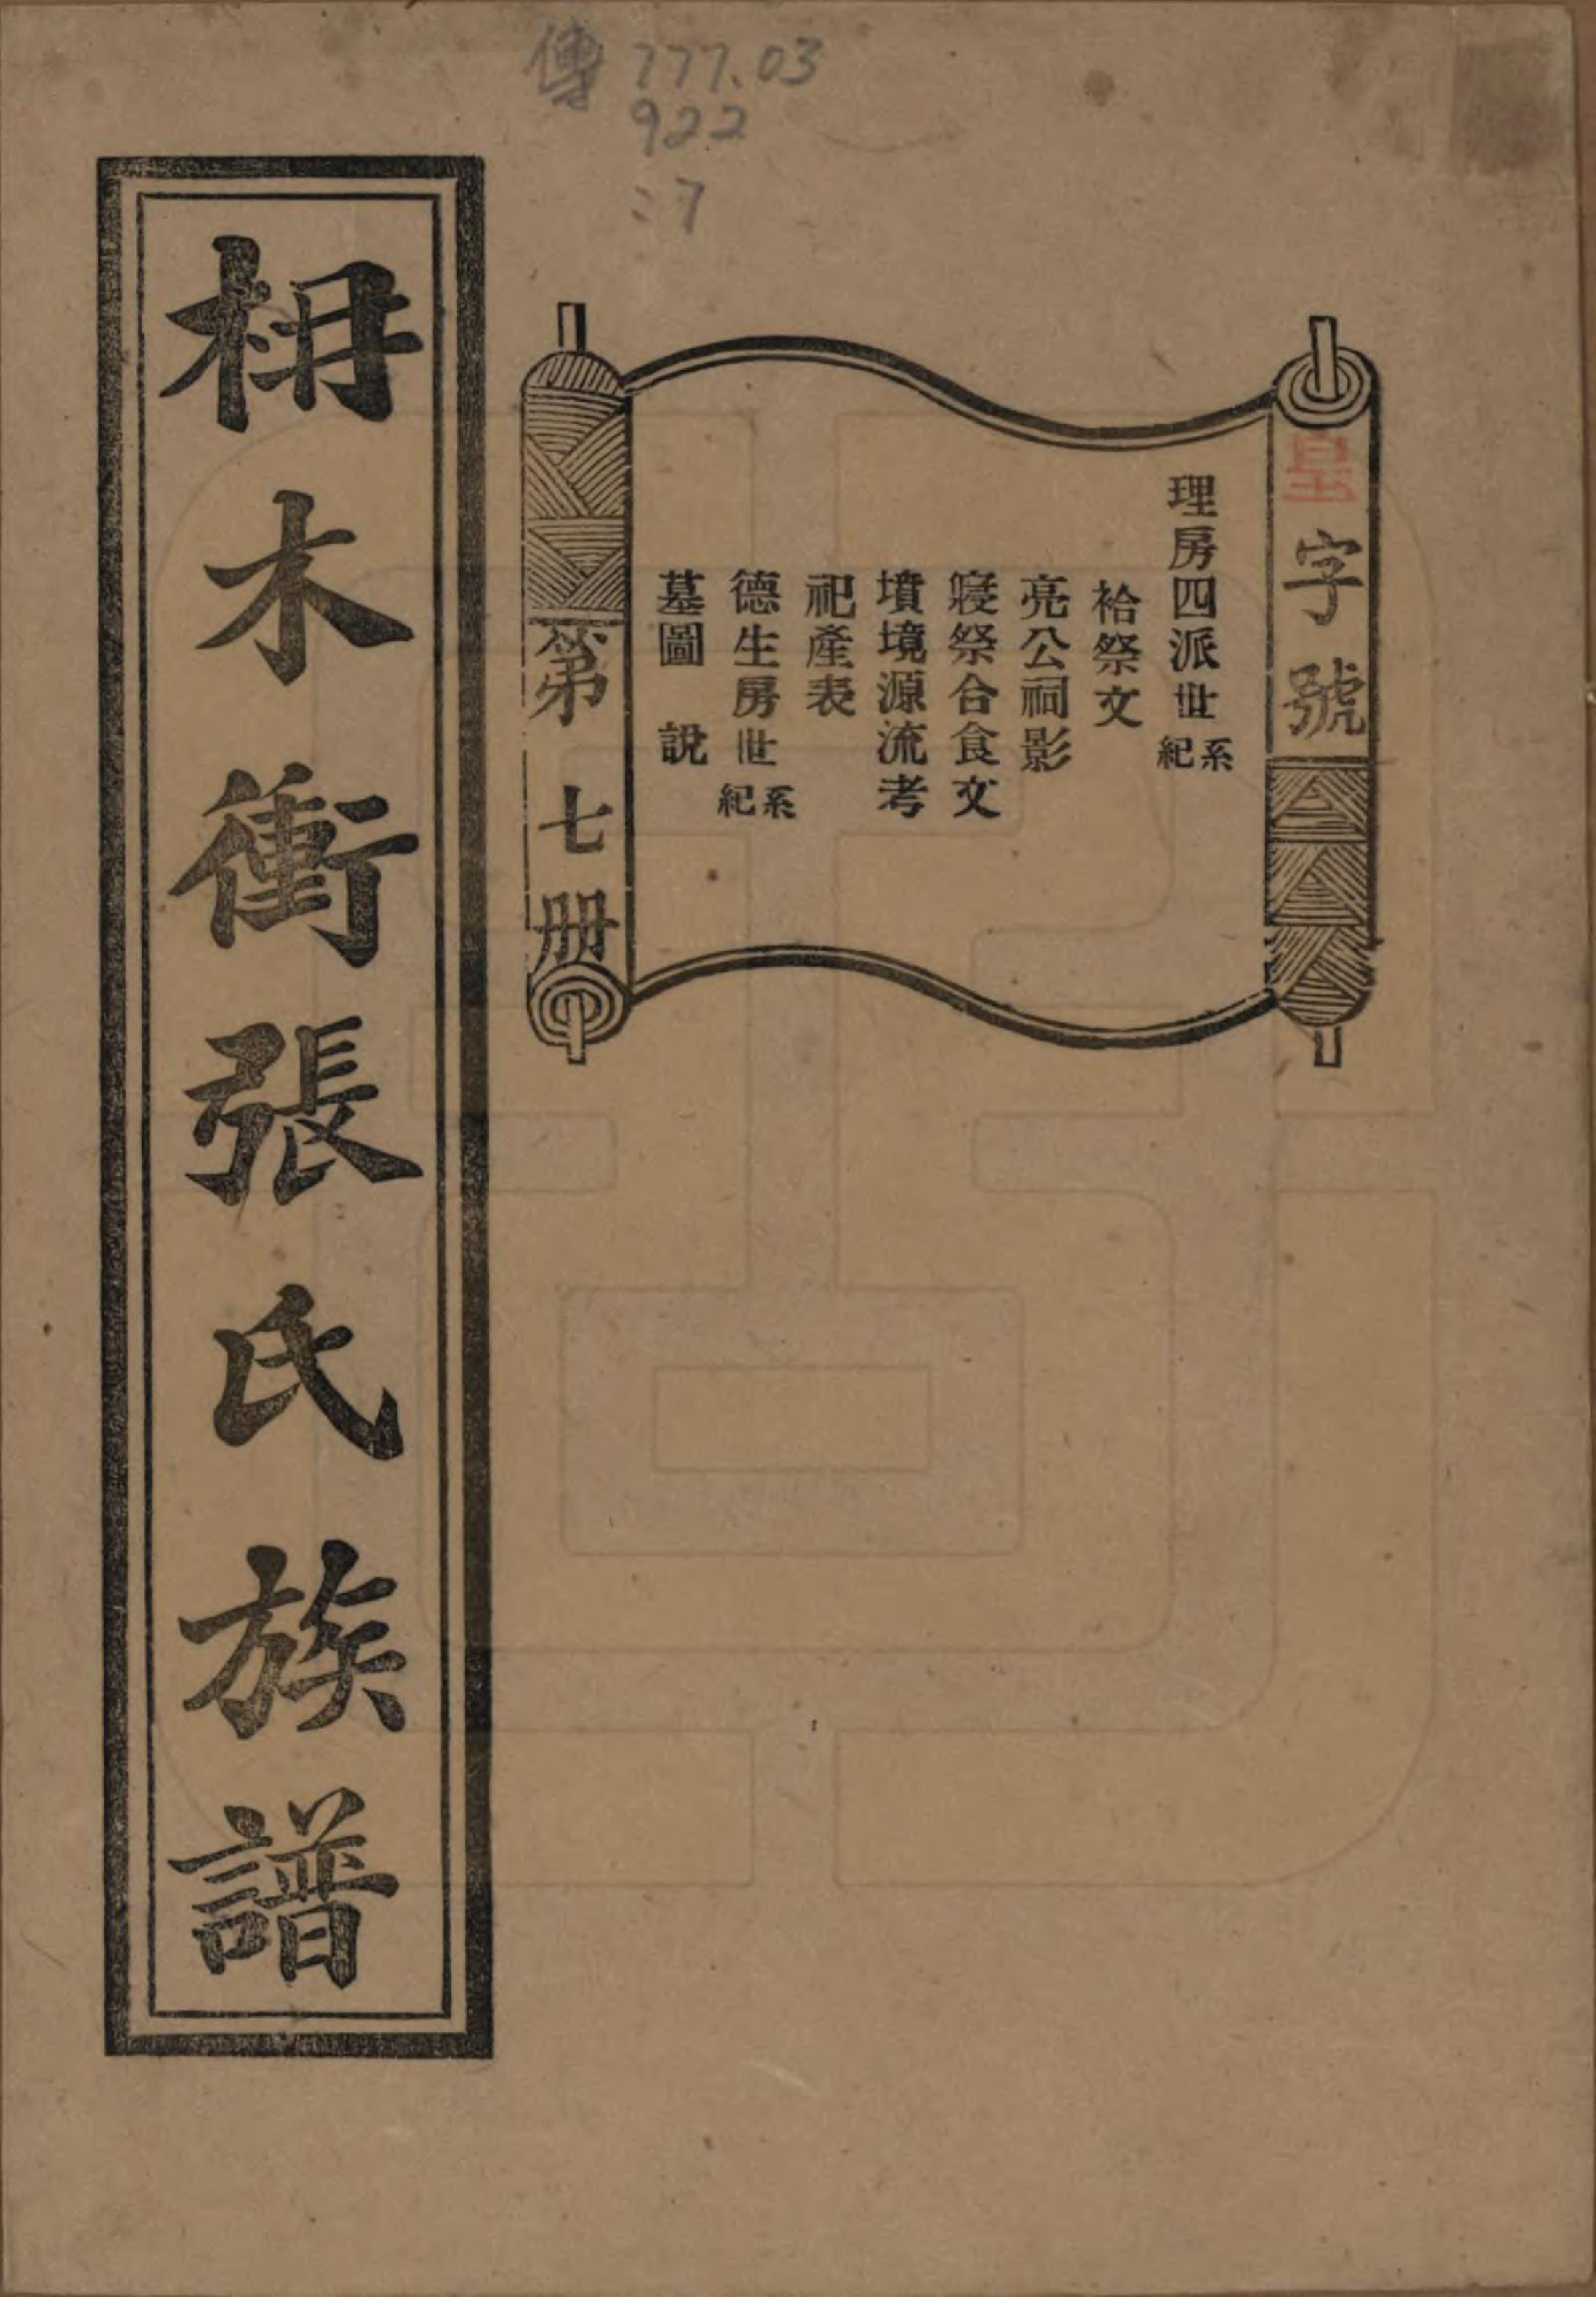 傳 777.03
922
:7
皇字號
理房四派世系紀
祫祭文
亮公祠影
寢祭合食文
墳境源流考
祀產表
德生房世系紀
墓圖 說
第七册
枏木衝張氏族譜